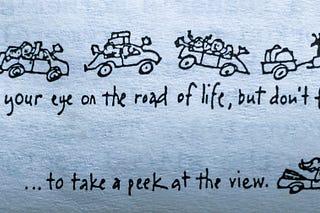 your eye on the road of life, but don't
...to take a peek at the view.